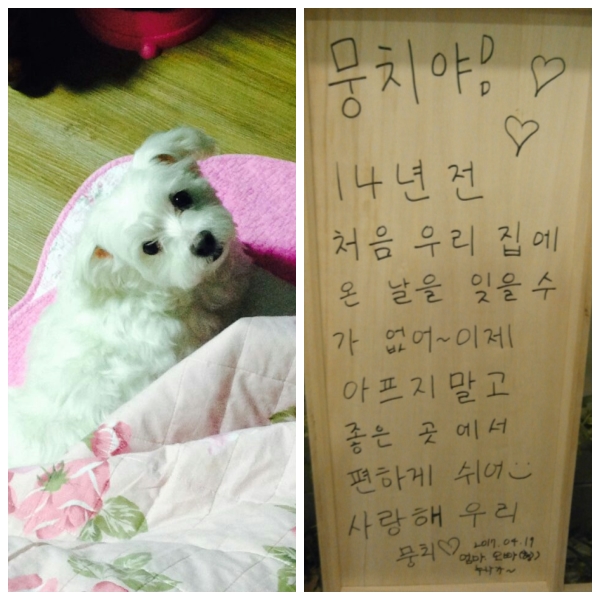 뭉치야!
14년 전
처음 우리 집에
온 날을 잊을수
가 없어~이제
아프지말고
좋은 곳에서
편하게 쉬어
사랑해 우리
뭉치♡ 2017.04.19
엄마
누나가~